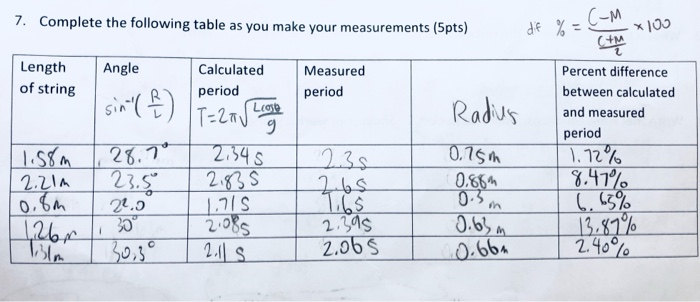 7. Complete the following table as you make your measurements (5pts)
dif % = (C-M / (C+M / 2)) × 100
Length of string | Angle sin⁻¹(R/L) | Calculated period T=2π√(Lcosθ/g) | Measured period | Radius | Percent difference between calculated and measured period
1.58m | 28.7° | 2.34s | 2.3s | 0.75m | 1.72%
2.21m | 23.5° | 2.83s | 2.6s | 0.88m | 8.47%
0.8m | 22.0° | 1.71s | 1.6s | 0.3 m | 6.65%
1.26m | 30° | 2.08s | 2.39s | 0.63 m | 13.87%
1.31m | 30.3° | 2.11 s | 2.06s | 0.66m | 2.40%